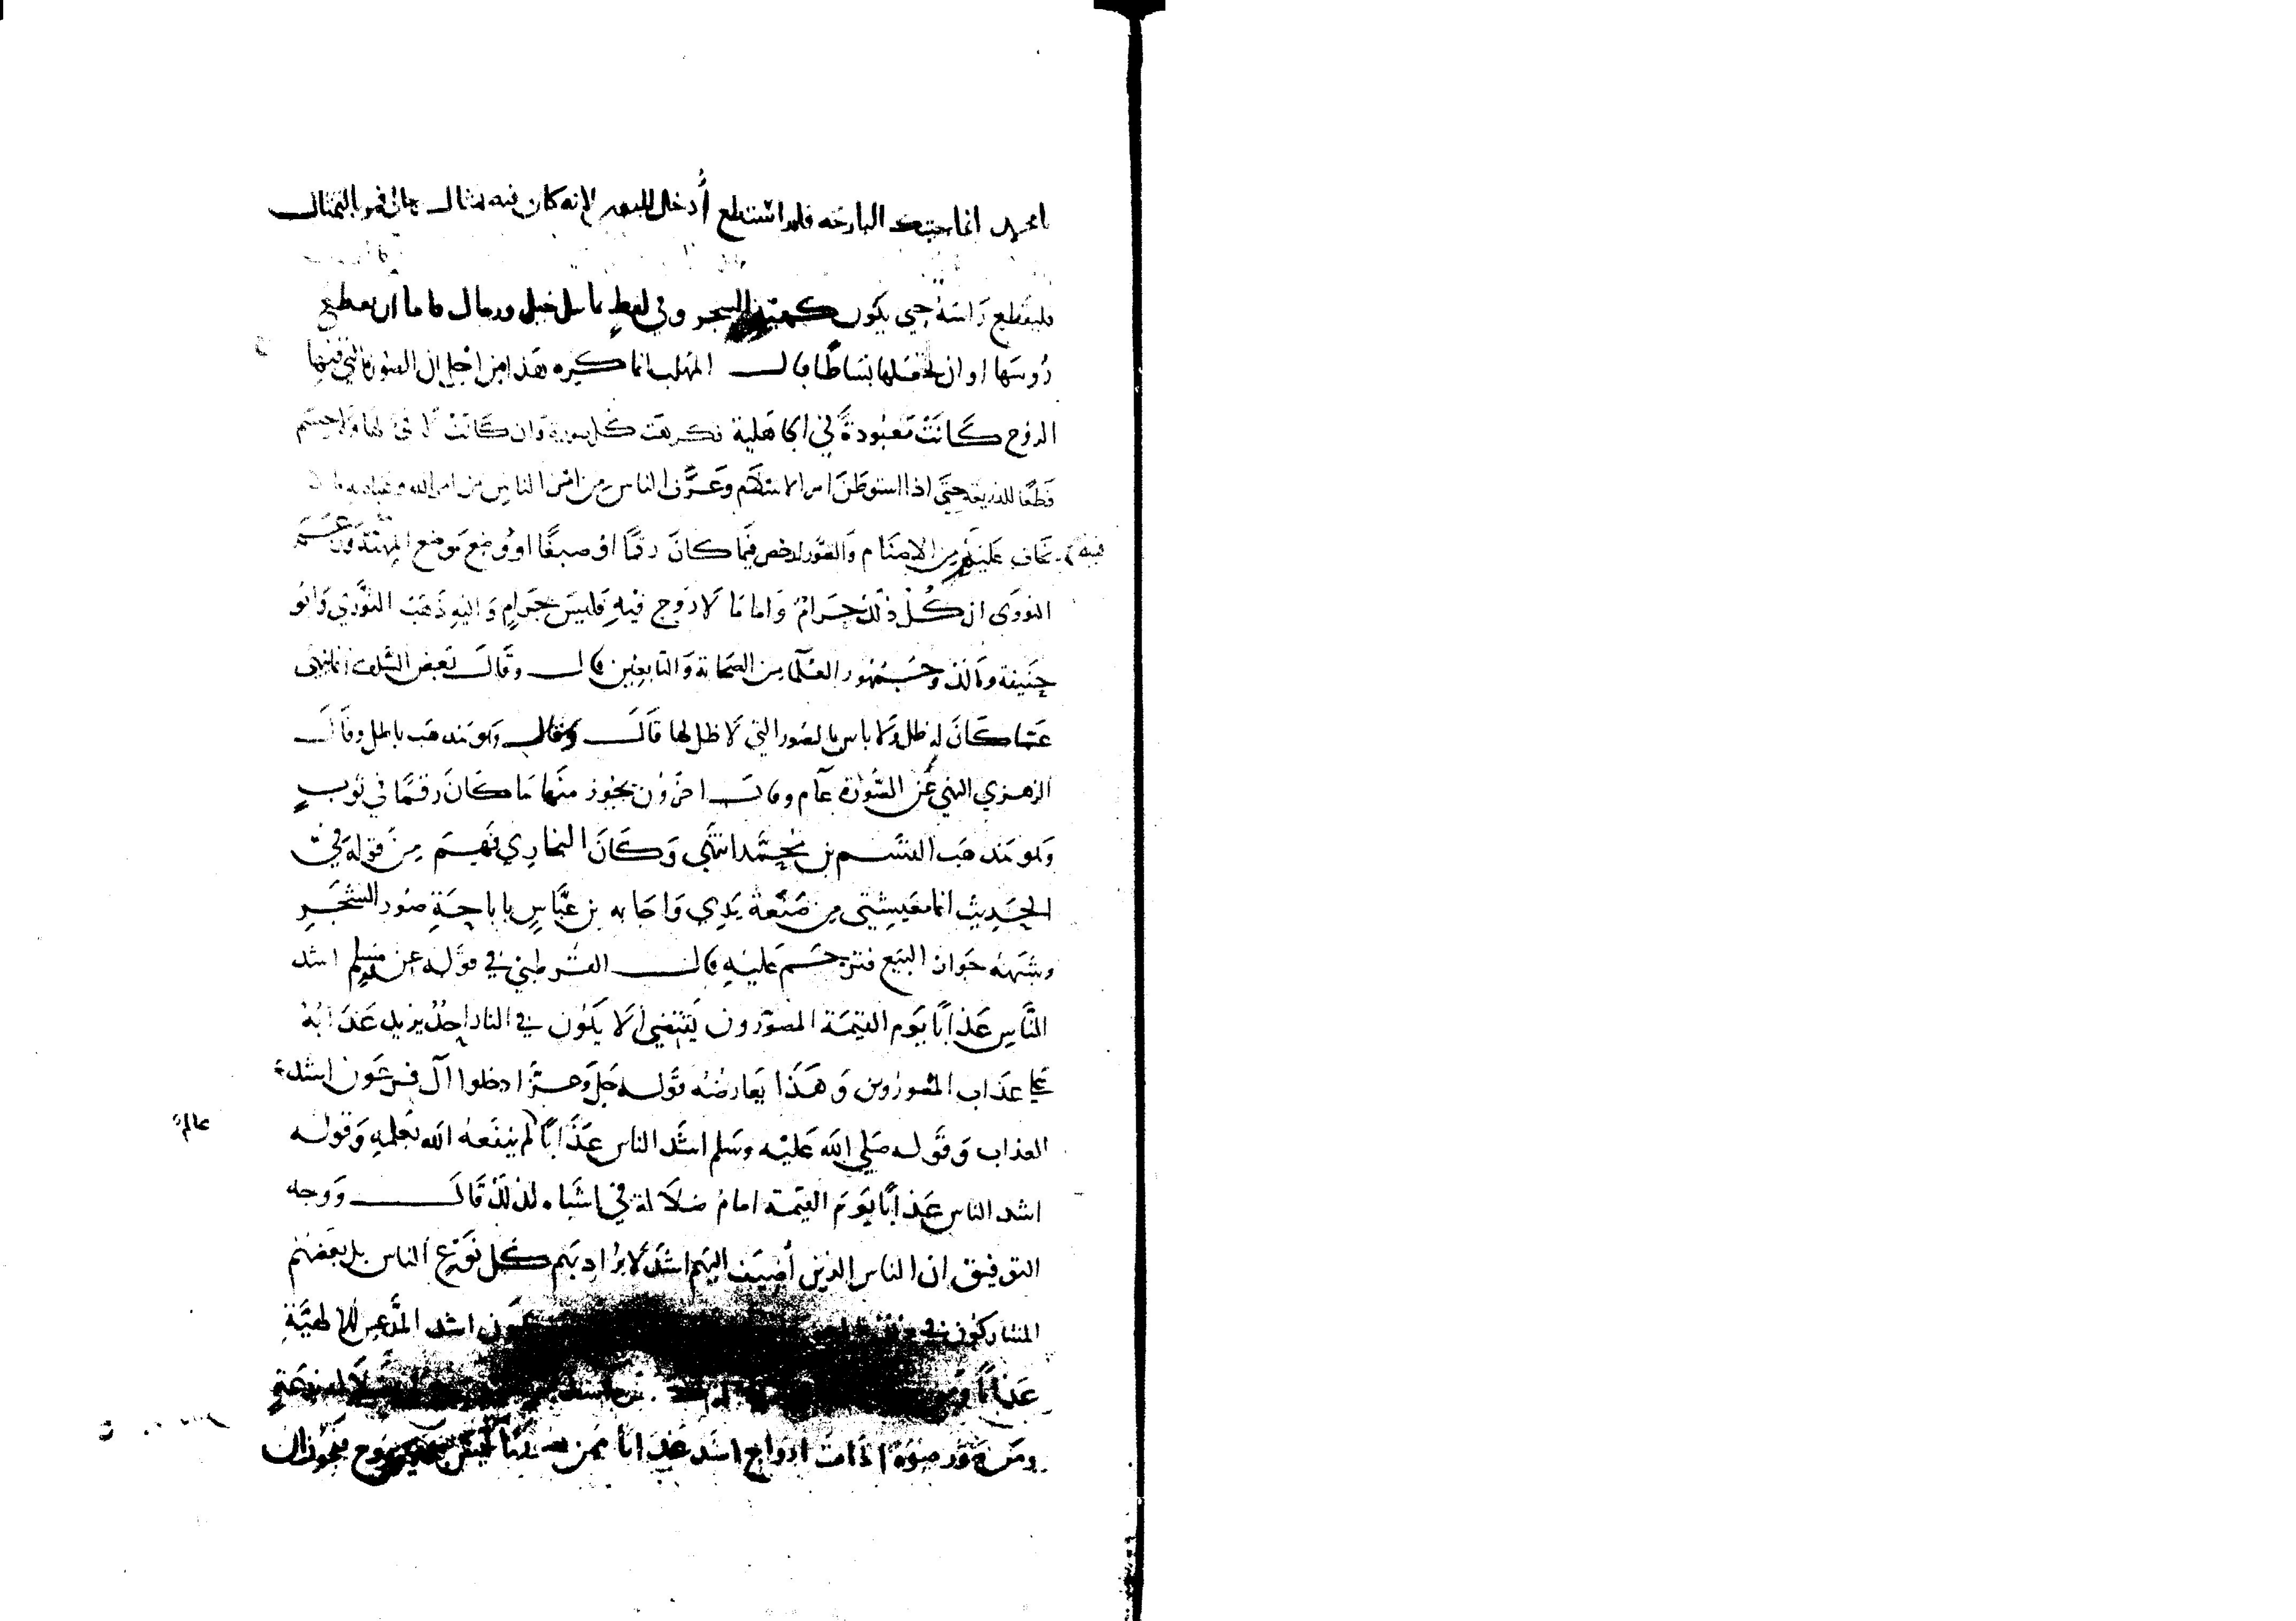 يا محمد انما جيتك البارحه فلم استطع أدخل البيت لانه كان فيه تمثال رجل فمر بالتمثال
فليقطع راسه حتي يكون كهية الشجر وفي لفظ تماثيل خيل ورجال فاما ان يقطع
رُوسها او ان تجعلها بساطًا قال المهلب انما كره هذا من اجل ان الصورة التي فيها
الروح كانت معبودة في الجاهلية فكرهت كل صورة وان كانت لا في لها ولا جسم
قطعًا للذريعة حتي اذا استوطن امر الاسلام وعرف الناس من امر الله وعبادته ما لا
يخاف عليهم من الاصنام والصور رخص فيما كان رقمًا او صبغًا او وضع موضع المهنة
فيه
النووي ان كل ذلك حرام واما ما لا روح فيه فليس بحرام واليه ذهب الثوري وابو
حنيفة ومالك وجمهور العلما من الصحابة والتابعين قال وقال بعض السلف انما نهي
عما كان له ظل ولا باس بالصور التي لا ظل لها قال وهو مذهب باطل وقال
الزهري النهي عن الصورة عام وقال اخرون يجوز منها ما كان رقمًا في ثوب
وهو مذهب القسم بن محمد انتهي وكان البخاري فهم من قوله في
الحديث انما معيشتي من صنعة يدي واجابه بن عباس باباحة صور الشجر
وشبهه جواز البيع فترجم عليه قال القرطبي في قوله عن مسلم اشد
الناس عذابًا يوم القيمة المصورون يقتضي الا يكون في النار احد يزيد عذابه
علي عذاب المصورين وهذا يعارضه قوله جل وعز ادخلوا آل فرعون اشد
العذاب وقوله صلي الله عليه وسلم اشد الناس عذابًا لم ينفعه الله بعلمه وقوله
عالم
اشد الناس عذابًا يوم القيمة امام ضلالة في اشباه لذلك قال ووجه
التوفيق ان الناس الذين أضيف اليهم اشد لا يراد بهم كل نوع الناس بل بعضهم
المشاركون في اشد المدعين للالهية
عذابًا
ومن صور صورة ذات ارواح اشد عذابًا ممن بذي روح فيجوز ان